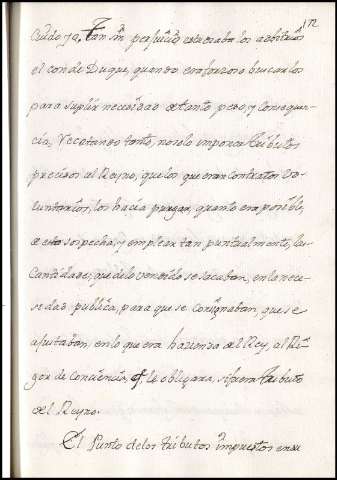 172
Cuido ya, tan sin perjuicio escusaba los arbitrios
el conde Duque, quando era forzoso buscarlos
para suplir necesidad de tanto peso, y consequen-
cia, recatando tanto, no solo imponer tributos
precisos al Reyno, que los que eran contratos vo-
luntarios, los hacia purgar, quanto era posible,
de esta sospecha, y emplear tan puntualmente, las
cantidades, que de lo vendido se sacaban, en la nece-
sidad publica, para que se consignaban, que se
ajustaban, en lo que era hazienda del Rey, al Ri-
gor de conciencia, q̃ le obligara, si fuera tributo
del Reyno.
El Punto de los tributos impuestos en su